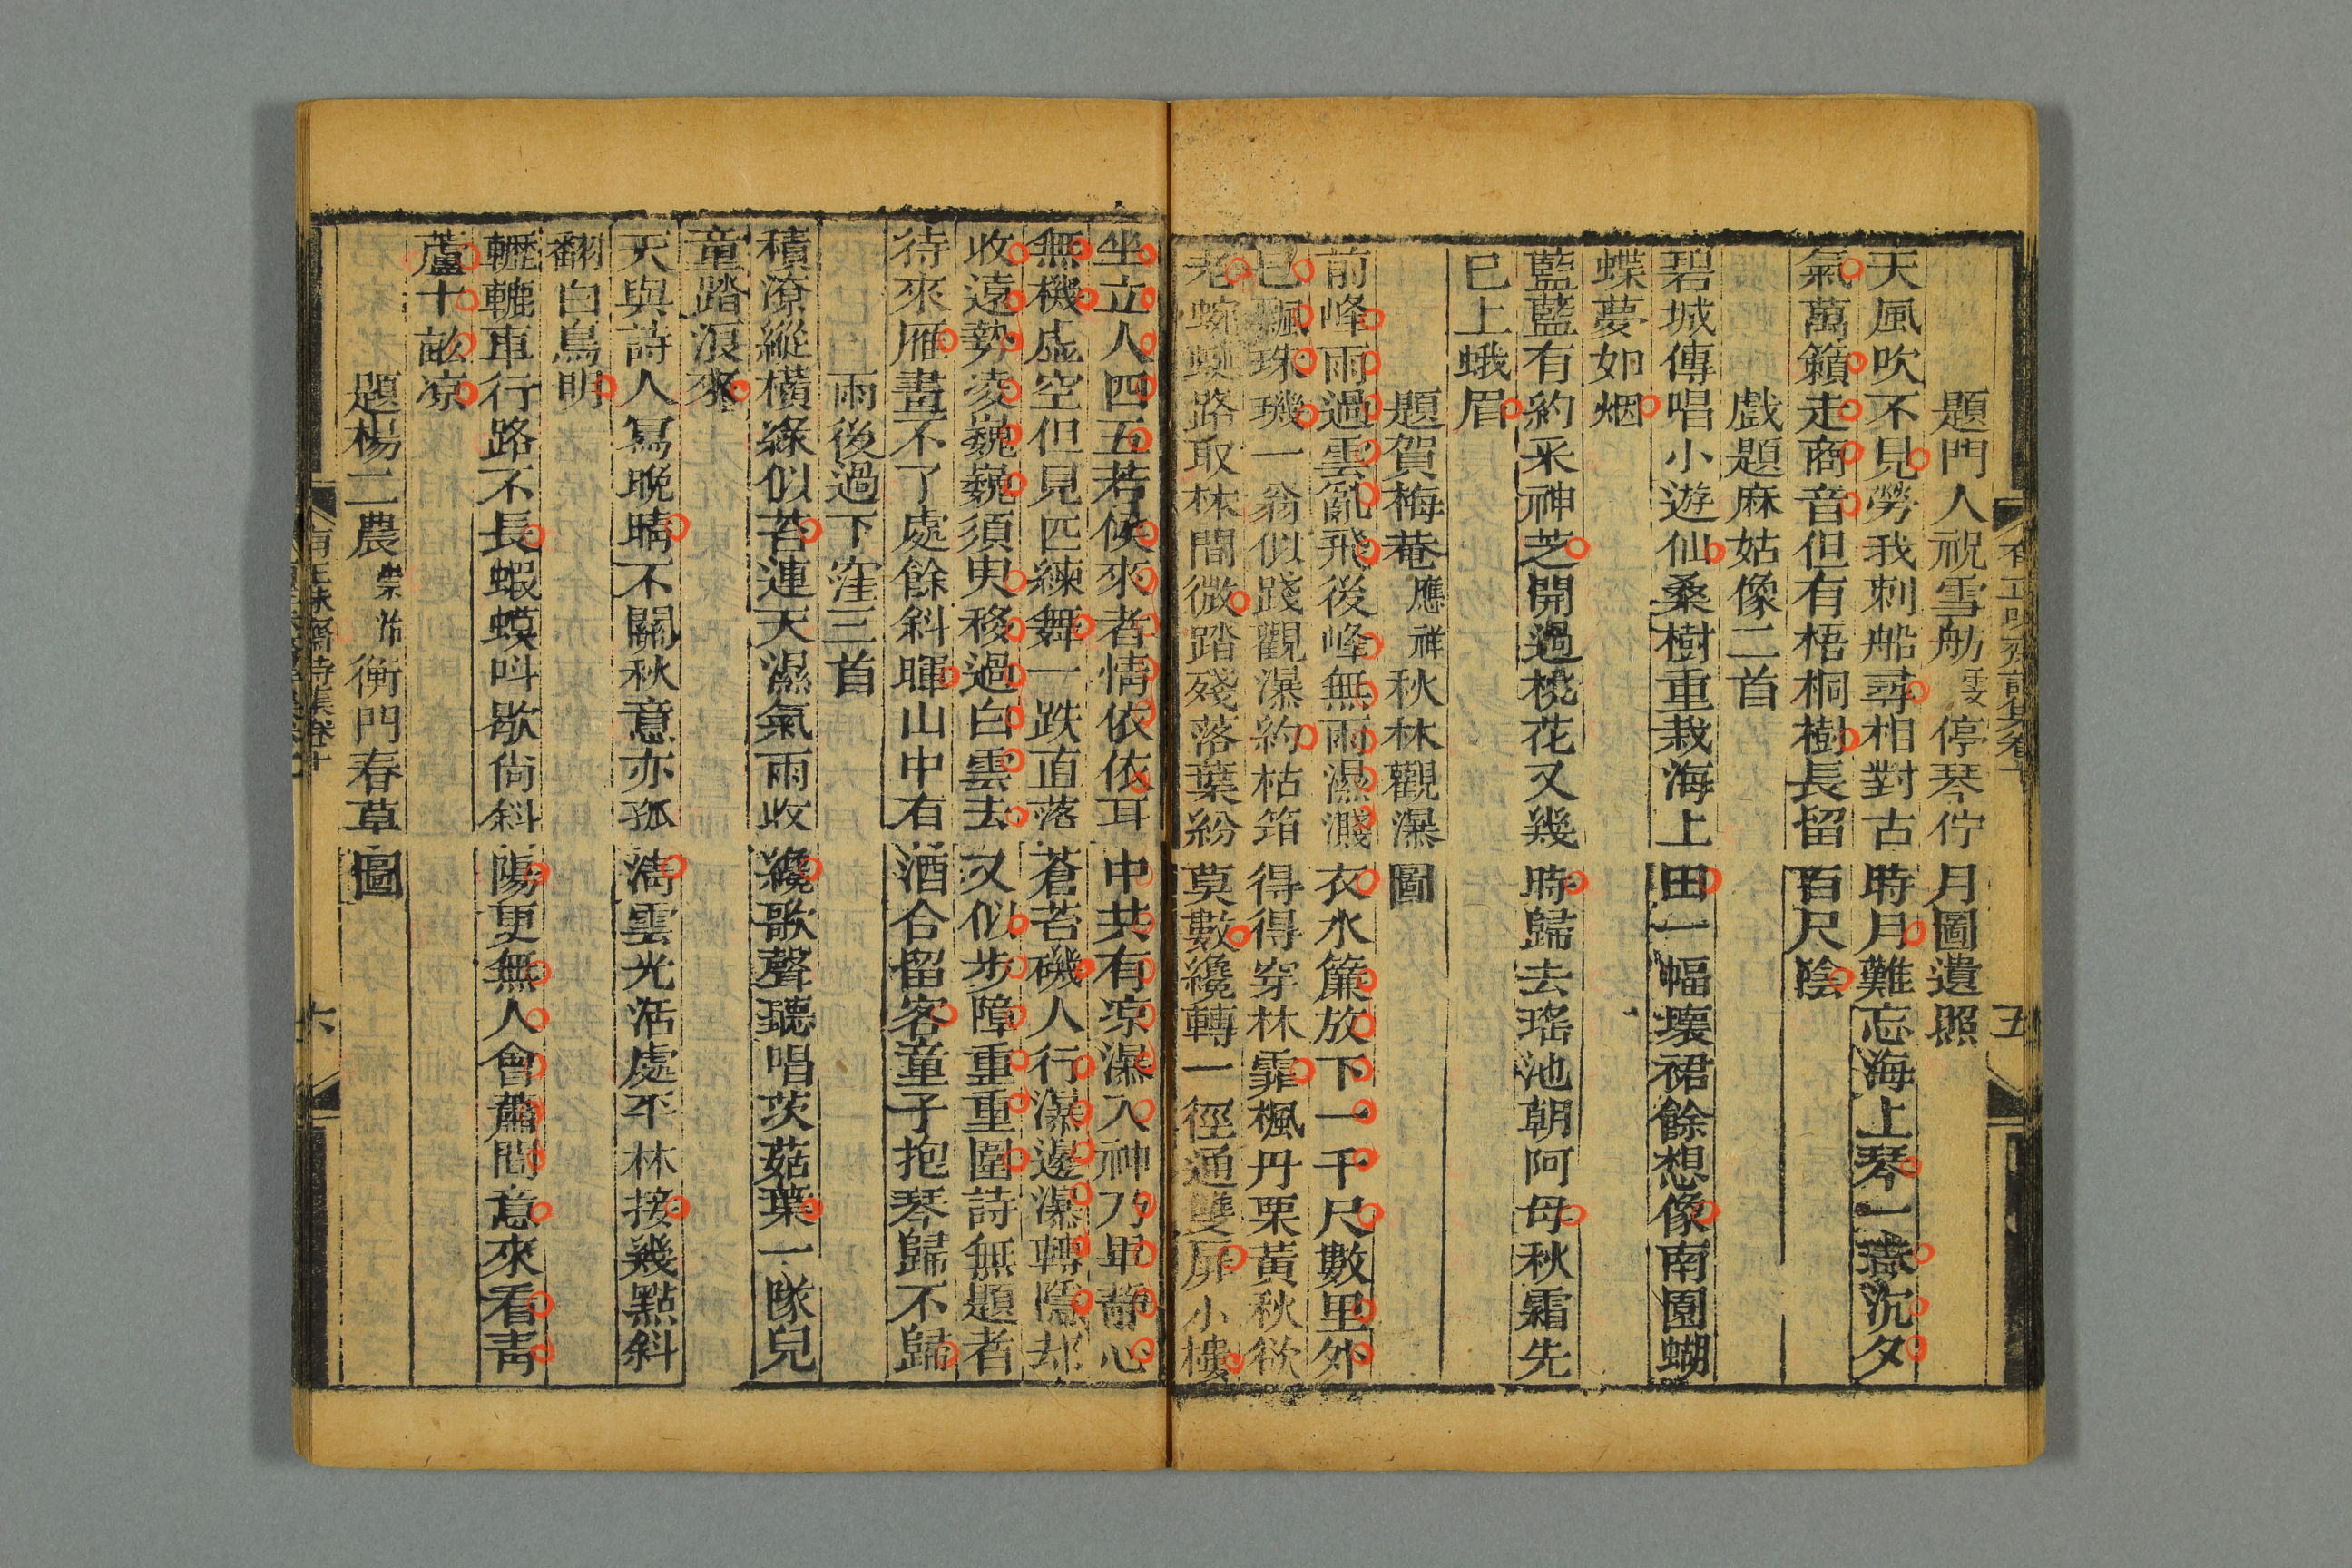 題門人祝雪舫雯停琴佇月圖遺照
天風吹不見勞我刺船尋相對古時月難忘海上琴一濤沉夕
氣萬籟走商音但有梧桐樹長留百尺陰
戲題麻姑像二首
碧城傳唱小遊仙桑樹重栽海上田一幅壞裙餘想像南園蝴
蝶夢如烟
藍藍有約采神芝開過桃花又幾時歸去瑤池朝阿母秋霜先
已上蛾眉
題賀梅菴應祥秋林觀瀑圖
前峰雨過雲亂飛後峰無雨濕濺衣水簾放下一千尺數里外
已飄珠璣一翁似踐觀瀑約枯筇得得穿林霏楓丹栗黃秋欲
老蜿蜒路取林間微踏殘落葉紛莫數纔轉一徑通雙扉小樓
坐立人四五若候來者情依依耳中共有凉瀑入神乃畢靜心
無機虛空但見匹練舞一跌直落蒼苔磯人行瀑邊瀑轉隱却
收遠勢凌巍巍須臾移過白雲去又似步障重重圍詩無題者
待來雁畫不了處餘斜暉山中有酒合留客童子抱琴歸不歸
雨後過下窪三首
積潦縱橫綠似苔連天濕氣雨收纔歌聲聽唱茨菇葉一隊兒
童踏浪來
天與詩人寫晚晴不關秋意亦孤清雲光活處平林接幾點斜
翻白鳥明
轣轆車行路不長蝦蟆呌歇尙斜陽更無人會蕭閒意來看靑
蘆十畝凉
題楊二農衡門春草圖
有正味齋詩集卷十
五
六